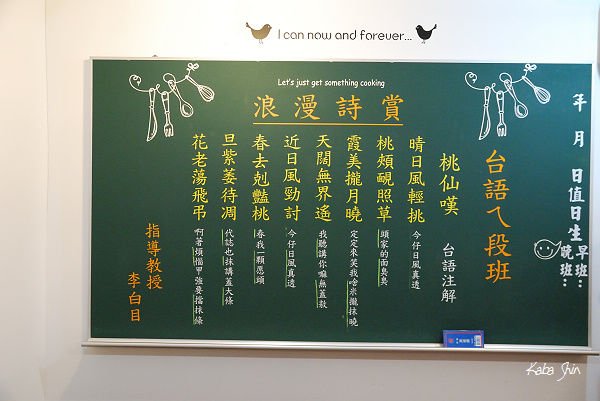 I can now and forever...
Let's just get something cooking
浪漫詩賞
年 月 日值日生
早班：
晚班：
台語ㄟ段班
桃仙嘆 台語注解
晴日風輕挑 今仔日風真透
桃頰靦照草 頭家的面臭臭
霞美攏月曉 定定來笑我啥米攏抹曉
天闊無界遙 我聽講你嘛無蓋敖
近日風勁討 今仔日風真透
春去剋豔桃 春我一顆憨頭
旦紫萎待凋 代誌也抹講蓋大條
花老蕩飛弔 啊著煩惱甲強要擋抹條
指導教授
李白目
Kaba Shin